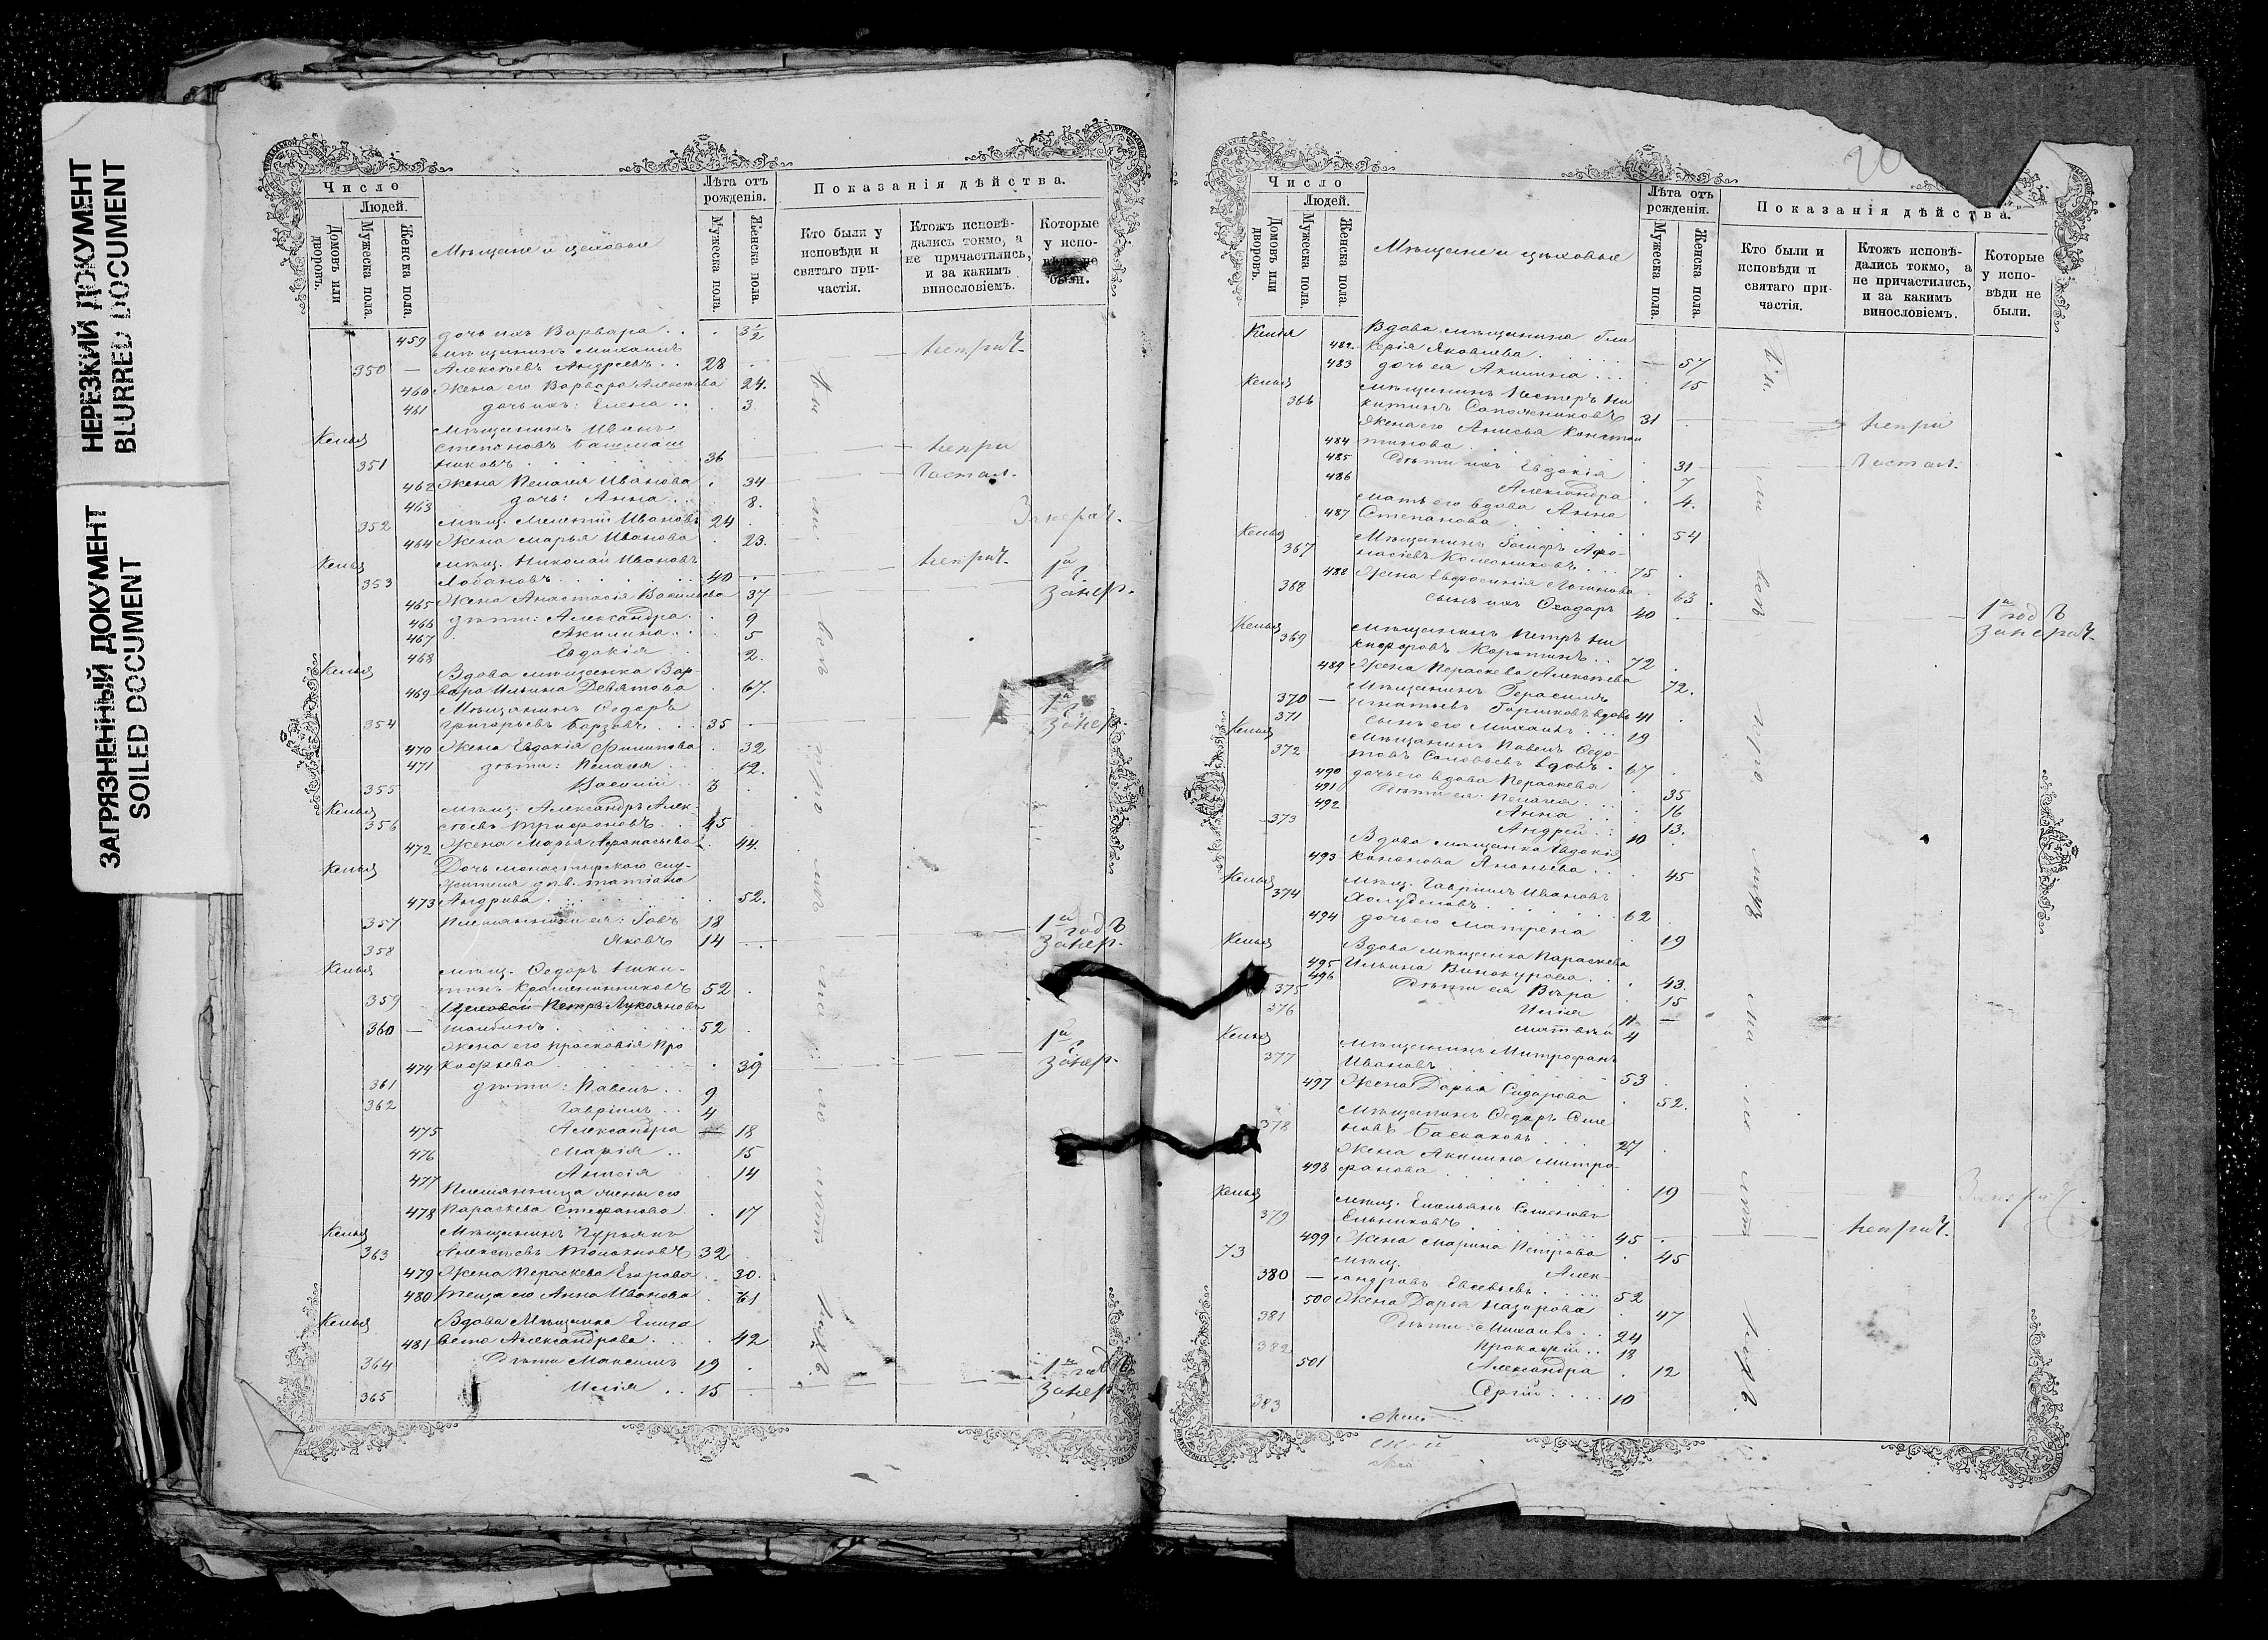 НЕРЕЗКИЙ ДОКУМЕНТ
BLURRED DOCUMENT
ЗАГРЯЗНЕННЫЙ ДОКУМЕНТ
SOILED DOCUMENT
Число
Людей.
Домовъ или дворовъ.
Мужеска пола.
Женска пола.
Мѣщане и цеховые
Лѣта отъ рожденія.
Мужеска пола.
Женска пола.
Показанія дѣйства.
Кто были у исповѣди и святаго причастія.
Ктожъ исповѣдались токмо, а не причастились, и за какимъ винословіемъ.
Которые у исповѣди не были.
459 дочь ихъ Варвара . . 3½
мѣщанинъ Михаилъ
350 — Алексѣевъ Андреевъ . . 28
460 Жена его Варвара Алексѣева 24.
461 дочь ихъ: Елена . . 3
Келья Мѣщанинъ Иванъ
Степановъ Башмаш
351 никовъ . . 36
462 Жена Пелагея Иванова 34
463 дочь: Анна . . 8.
352 мѣщ. Мелентій Ивановъ 24
464 Жена Марья Иванова 23.
Келья мѣщ. Николай Ивановъ
353 Лобановъ . . . 40
465 Жена Анастасія Васильева 37
466 дѣти: Александра . 9
467 Акилина . . 5
468 Евдокія . . 2.
Келья Вдова мѣщанка Вар-
469 вара Ильина Девятова 67.
Мѣщанинъ Ѳедоръ
354 Григорьевъ Борзовъ . . 35
470 Жена Евдокія Филипова 32
471 дѣти: Пелагея . . 12.
355 Василій . . 3
Келья мѣщ. Александръ Алек-
356 сѣевъ Трифоновъ . . 45
472 Жена Марья Афанасьева 44.
Келья Дочь монастырскаго слу-
жителя дѣв. Татіана
473 Андреева . . . 52.
357 Племянники ея: Іовъ 18
358 Яковъ 14
Келья мѣщ. Ѳедоръ Ники-
359 тинъ Крашенинниковъ 52
Цеховой Петръ Лукояновъ
360 — Шалбинъ . . . 52
Жена его Прасковія Про
474 кофьева . . . 39
361 дѣти: Павелъ . . 9
362 Гавріилъ . . 4
475 Александра — 18
476 Марія . . 15
477 Анисія 14
Племянница жены его
478 Параскева Стефанова . 17
Келья Мѣщанинъ Гурьянъ
363 Алексѣевъ Толокновъ 32
479 Жена Параскева Егорова . 30.
480 Теща его Анна Иванова . 61
Келья Вдова Мѣщанка Елиза
481 вета Александрова . . 42
364 Дѣти Максимъ 19
365 Илія . . 15
Число
Людей.
Домовъ или дворовъ.
Мужеска пола.
Женска пола.
Мѣщане и цеховые
Лѣта отъ рожденія.
Мужеска пола.
Женска пола.
Показанія дѣйства.
Кто были и исповѣди и святаго причастія.
Ктожъ исповѣдались токмо, а не причастились, и за какимъ винословіемъ.
Которые у исповѣди не были.
Келья Вдова мѣщанина Гли
482 керія Яковлева . . . 57
483 дочь ея Акилина . . . 15
Келья мѣщанинъ Нестеръ Ни
366 китинъ Сапожниковъ 31
Жена его Анисья Констан
484 тинова . . . 31
485 Дѣти ихъ Евдокія 7
486 Александра 4.
мать его вдова Анна
487 Степанова . . . 54
Келья Мѣщанинъ Афо-
367 насіевъ Колесниковъ . . 75
488 Жена Евфросинія Логинова 63
368 сынъ ихъ Ѳедоръ 40
Келья Мѣщанинъ Петръ Ни
369 кифоровъ Коротинъ . . 72
489 Жена Параскева Алексѣева 72.
Мѣщанинъ Герасимъ
370 — Игнатьевъ Горшковъ вдовъ 41
371 сынъ его Михаилъ . . 19
Келья Мѣщанинъ Павелъ Ѳедо-
372 товъ Соловьевъ вдовъ . 67
490 дочь его вдова Параскева 35
491 Дѣти ея: Пелагея . . . 16
492 Анна . . . 13.
373 Андрей . . 10
Вдова мѣщанка Евдокія
493 Кононова Ананьева . . . 45
Келья мѣщ. Гавріилъ Ивановъ
374 Холуденовъ . . . 62
494 дочь его Матрена 19
Келья Вдова мѣщанка Параскева
495 Ильина Винокурова . . 43.
496 Дѣти ея Вѣра 15
375 Илія 11
376 Матвѣй 4
Келья мѣщанинъ Митрофанъ
377 Ивановъ . . . 53
497 Жена Дарья Сидорова 52.
Мѣщанинъ Ѳедоръ Семе
378 новъ Баскаковъ . . . 27
Жена Акилина Митро-
498 фанова . . . 19
Келья мѣщ. Емельянъ Семеновъ
379 Ельниковъ . . . 45
499 Жена Марина Петрова 45
73 мѣщ. Алек-
380 — сандровъ Евсевьевъ . . 52
500 Жена Дарья Назарова 47
381 Дѣти: Михаилъ . . 24
382 Прокофій . . 18
501 Александра . 12
383 Сергій . . . 10